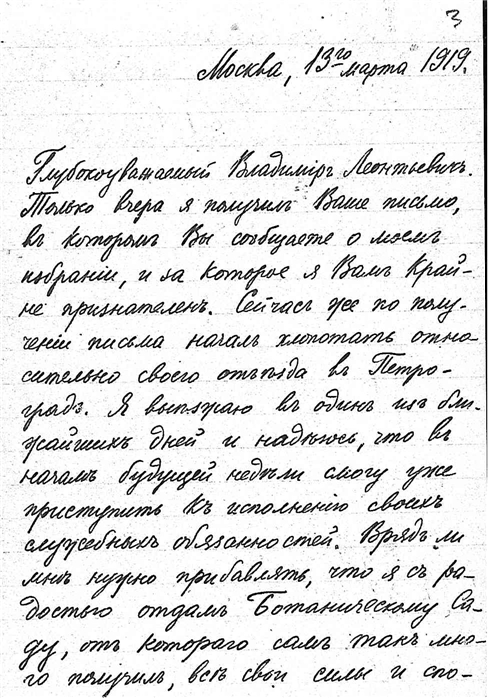 3
Москва, 13го марта 1919.
Глубокоуважаемый Владиміръ Леонтьевичъ.
Только вчера я получилъ Ваше письмо,
въ которомъ Вы сообщаете о моемъ
избраніи, и за которое я Вамъ край-
не признателенъ. Сейчасъ же по полу-
ченіи письма началъ хлопотать отно-
сительно своего отъѣзда въ Петро-
градъ. Я выѣзжаю въ одинъ изъ бли-
жайшихъ дней и надѣюсь, что въ
началѣ будущей недѣли смогу уже
приступить къ исполненію своихъ
служебныхъ обязанностей. Врядъ ли
мнѣ нужно прибавлять, что я съ ра-
достью отдамъ Ботаническому Са-
ду, отъ котораго самъ такъ мно-
го получилъ, всѣ свои силы и спо-